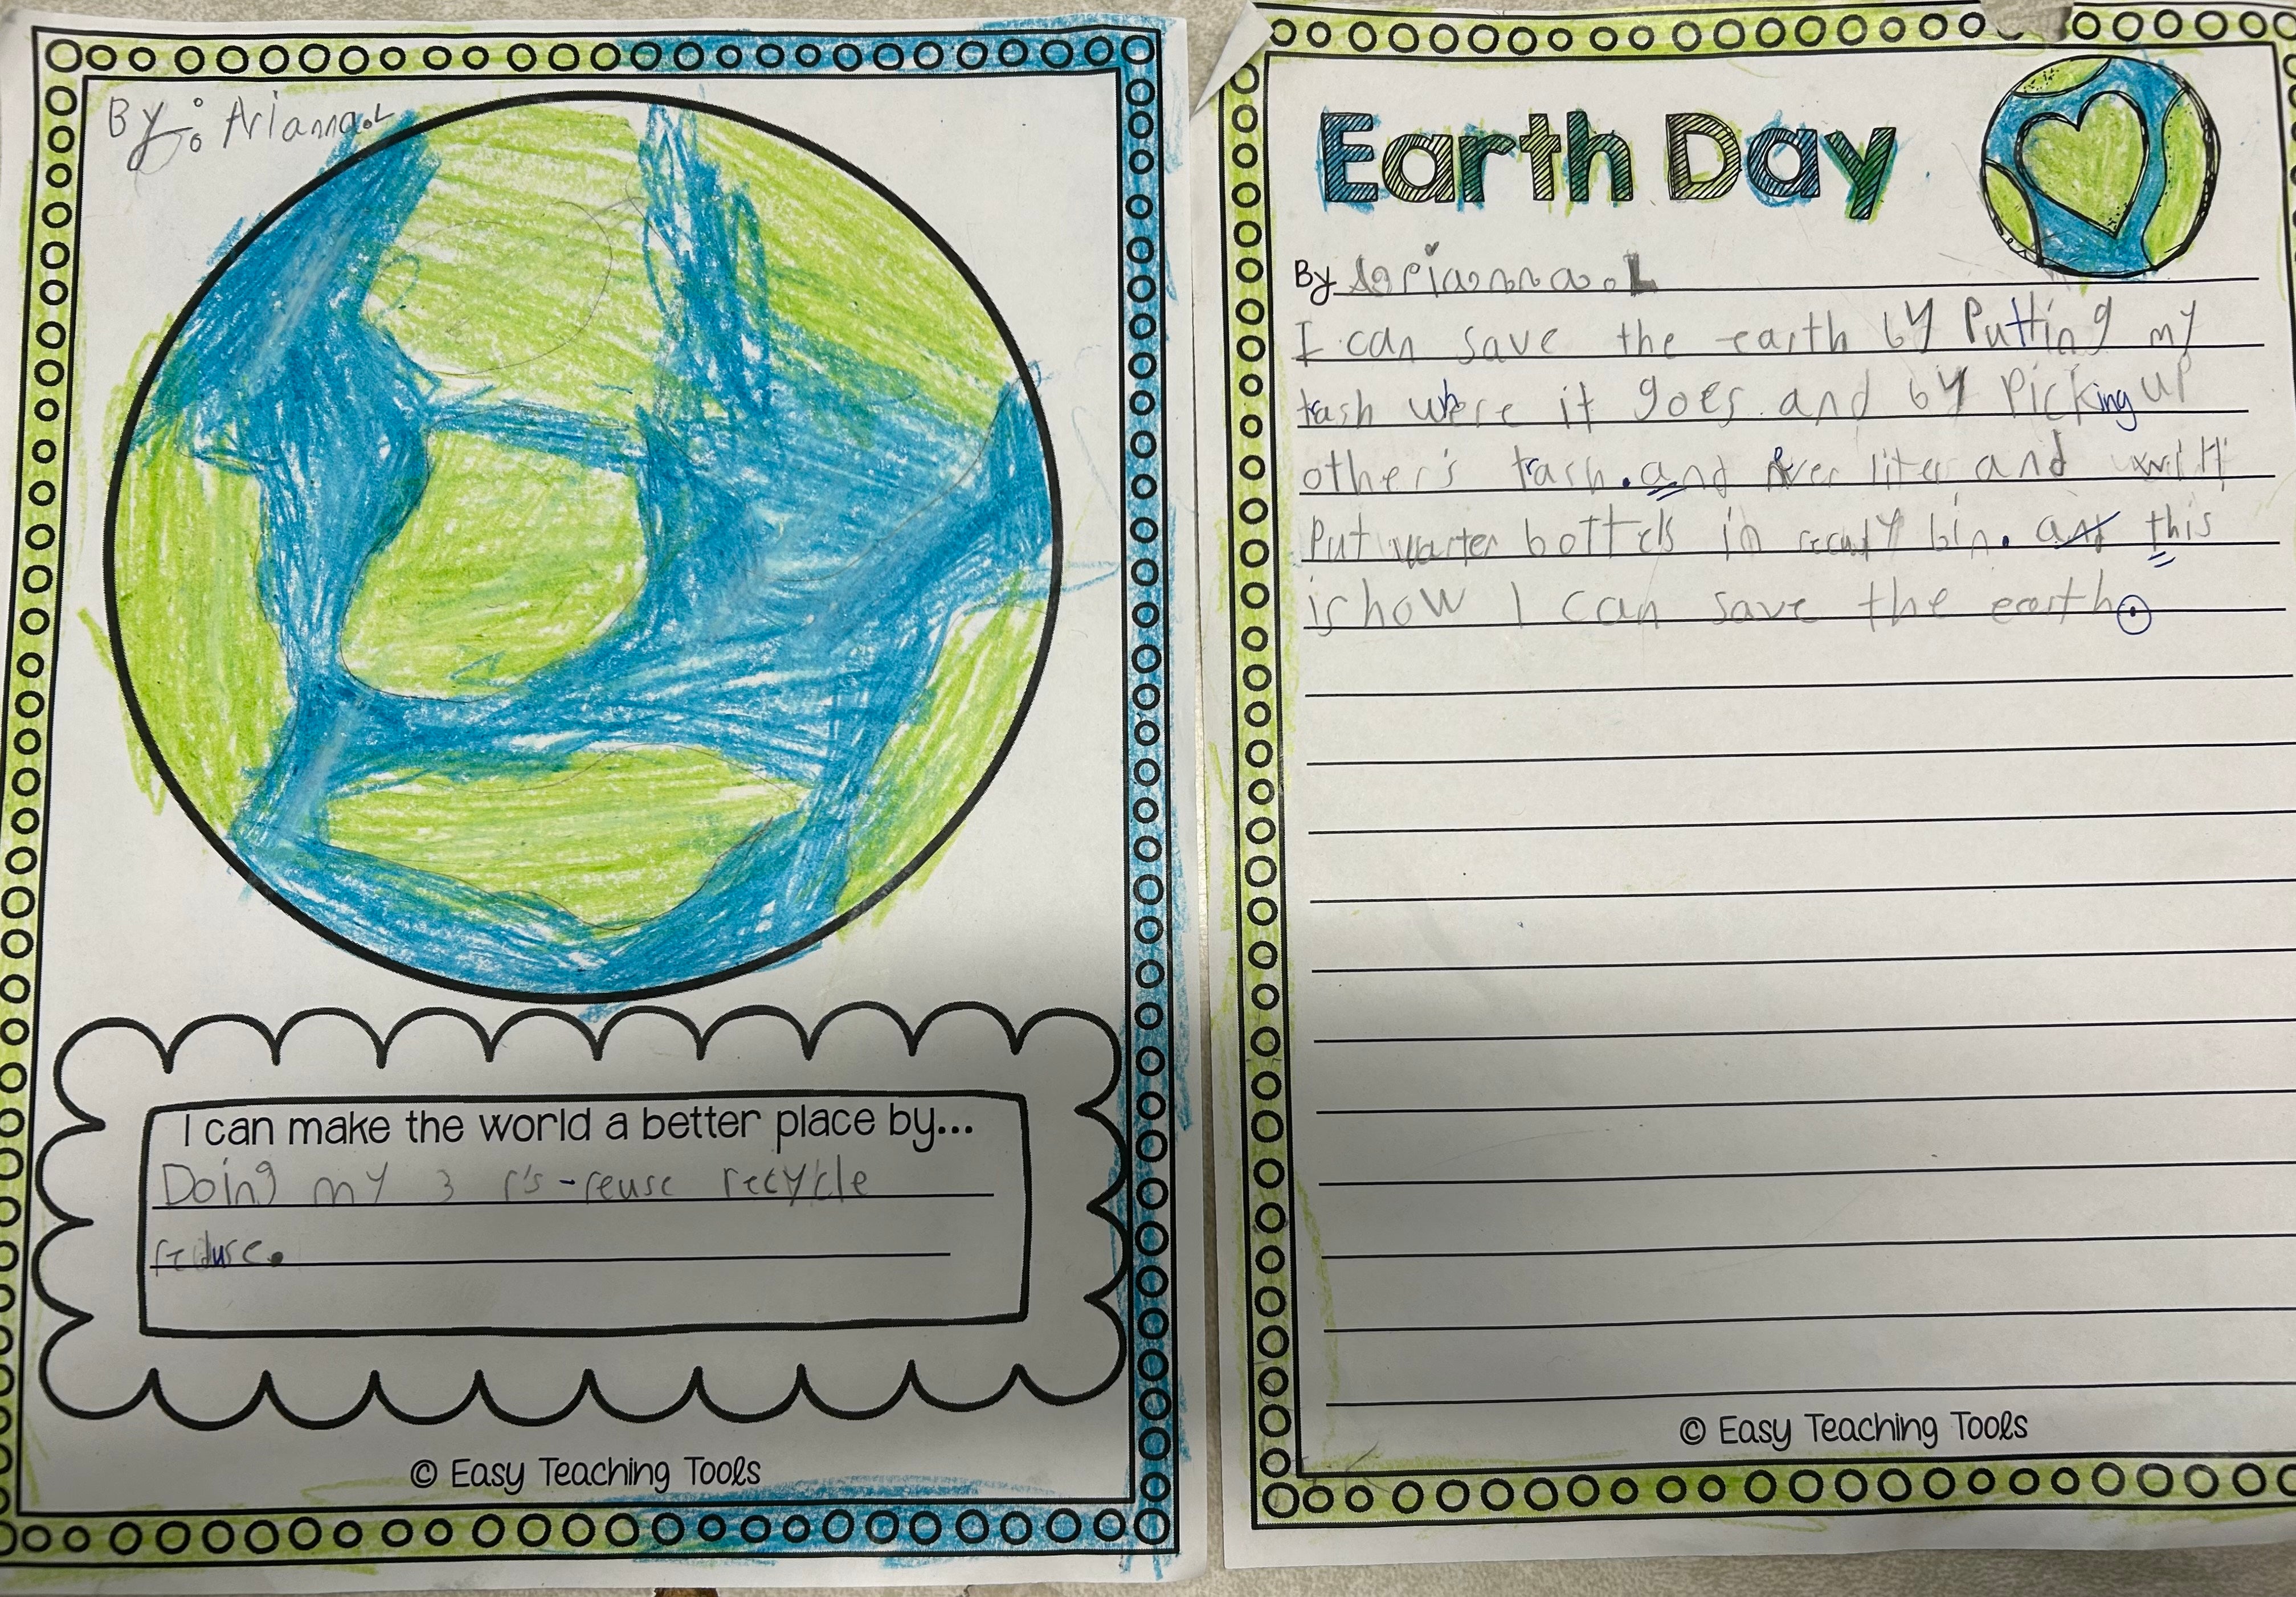 By: Arianna.L
I can make the world a better place by...
Doing my 3 r's-reuse recycle
reduse.
© Easy Teaching Tools
Earth Day
By Arianna.L
I can save the earth by Putting my
trash where it goes and by Picking up
other's trash. and never liter and will
Put warter bottels in bin. and this
is how I can save the earth.
© Easy Teaching Tools